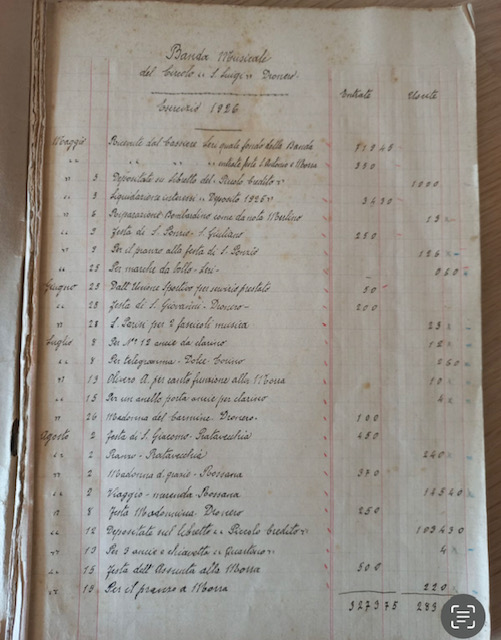 Banda Musicale
del Circolo "S. Luigi" Dronero
Esercizio 1926
Entrate Uscite
Maggio Ricevute dal Cassiere Seri quale fondo della Banda 71945
" " " " entrate feste S. Antonio e Morra 350
" 3 Depositate su libretto del "Piccolo Credito" 1000
" 3 Liquidazione interessi "Deposito 1925" 3430
" 8 Riparazioni Bombardino come da nota Merlino 13
" 9 Festa di S. Ponzio - S. Giuliano 250
" 9 Per il pranzo alla festa di S. Ponzio 126
" 25 Per marche da bollo - Seri - 060
Giugno 25 Dall'Unione Sportiva per servizio prestato 50
" 28 Festa di S. Giovanni - Dronero - 200
" 28 S. Parisi per 2 fascicoli musica 23
Luglio 8 Per N° 12 ancie da clarino 12
" 8 Per telegramma - Torino 260
" 13 Olivero A. per canto funzione alla Morra 10
" 15 Per un anello porta ancie per clarino 4
" 26 Madonna del Carmine - Dronero - 100
Agosto 2 Festa di S. Giacomo - Ratavecchia 450
" 2 Pranzo - Ratavecchia 240
" 2 Madonna d. grazie - Rossana 370
" 2 Viaggio - merenda Rossana 14540
" 8 Festa Madonnina Dronero 250
" 12 Depositate sul libretto "Piccolo Credito" 103430
" 13 Per 3 ancie e chiavetta "Quartino" 4
" 15 Festa dell'Assunta alla Morra 500
" 15 Per il pranzo a Morra 220
327375 283